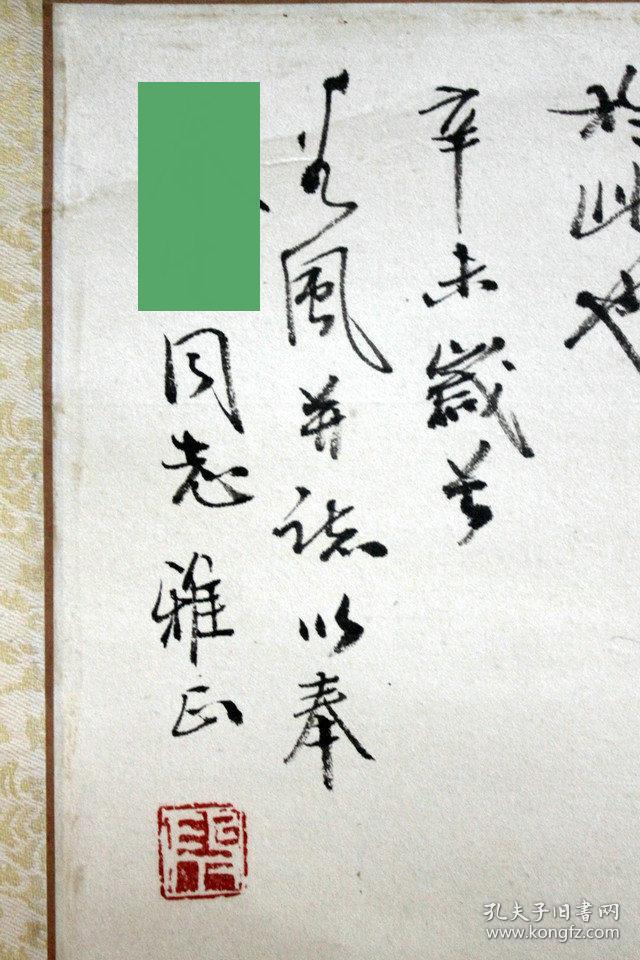 於此也
辛未歲首
風并誌以奉
同志雅正
孔夫子旧書网
www.kongfz.com